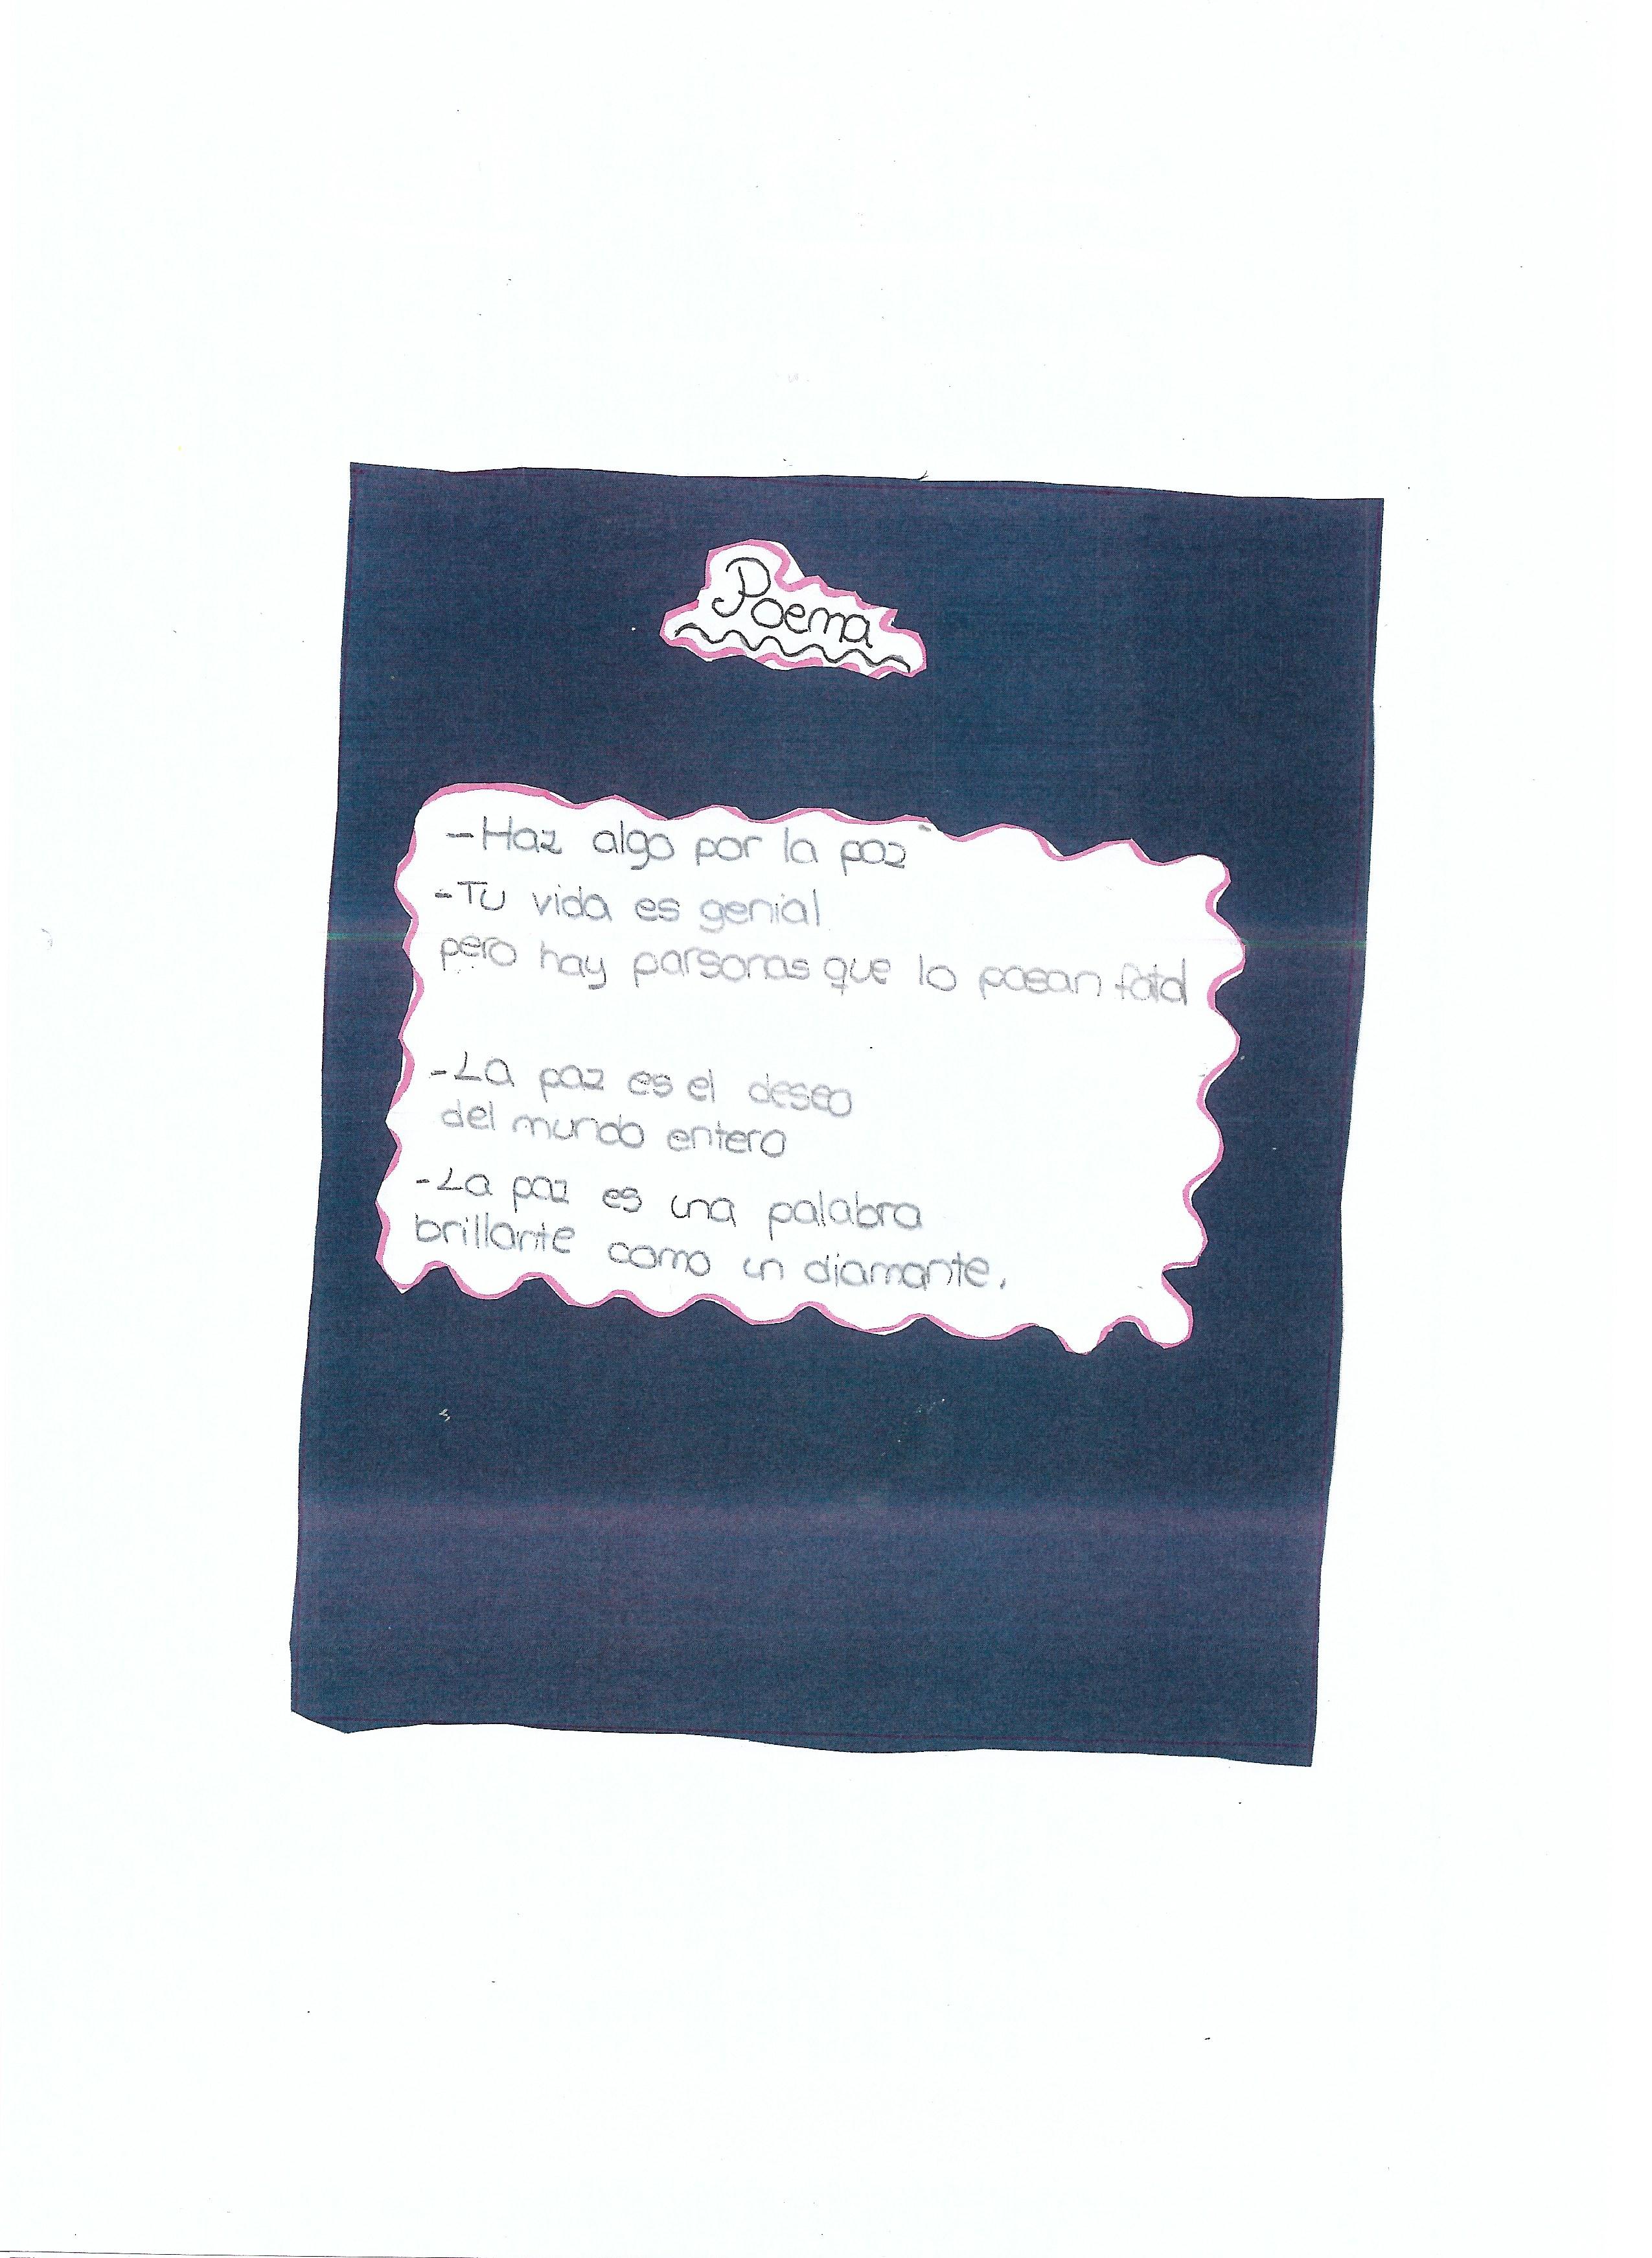 Poema
-Haz algo por la paz
-Tu vida es genial
pero hay parsonas que lo pasan fatal
-La paz es el deseo
del mundo entero
-La paz es una palabra
brillante como un diamante.